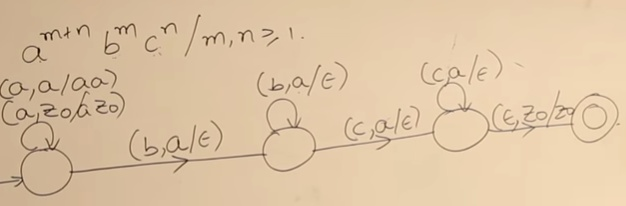 a^{m+n} b^m c^n / m, n ≥ 1.
(a, a/aa)
(a, z0/az0)
(b, a/ε)
(b, a/ε)
(c, a/ε)
(c, a/ε)
(ε, z0/z0)